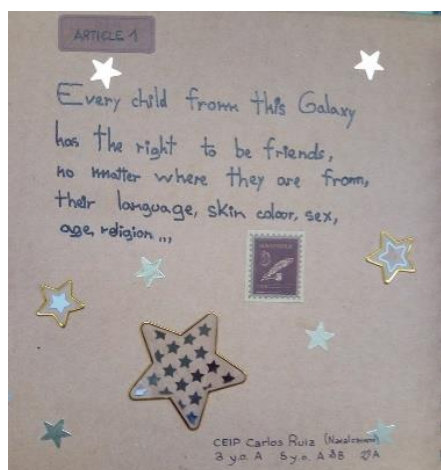 ARTICLE 1
Every child from this Galaxy
has the right to be friends,
no matter where they are from,
their language, skin colour, sex,
age, religion...
CEIP Carlos Ruiz (Navalcarnero)
3 y.o. A 5 y.o. A B